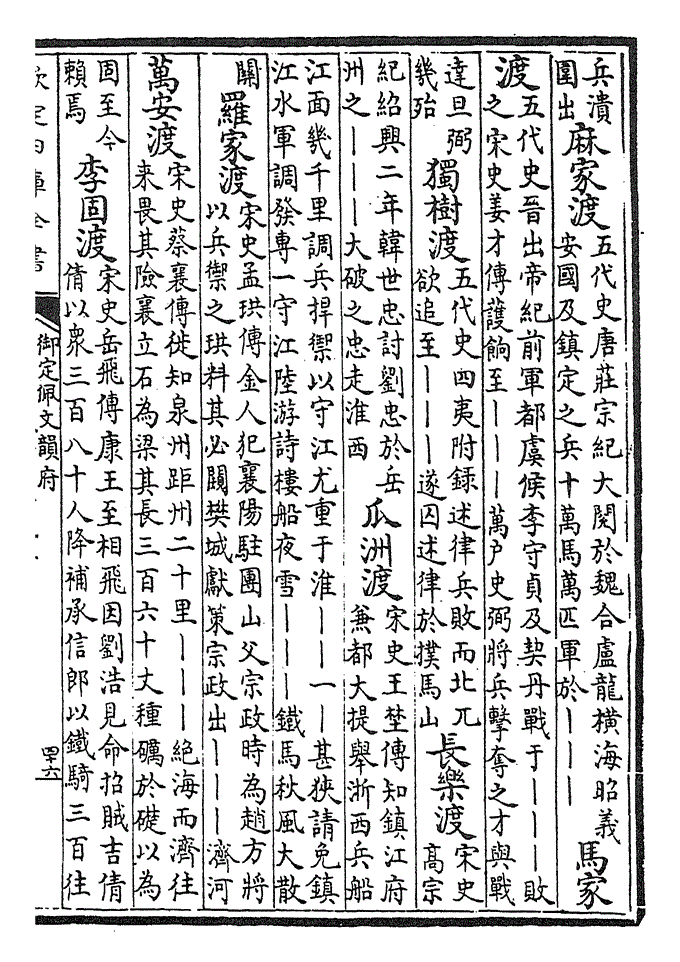 兵潰
圍出
麻家渡
五代史唐莊宗紀大閱於魏合盧龍橫海昭義
安國及鎮定之兵十萬馬萬匹軍於｜｜｜
馬家
渡
五代史晉出帝紀前軍都虞候李守貞及契丹戰于｜｜｜敗
之宋史姜才傳護餉至｜｜｜萬戶史弼將兵擊奪之才與戰
達旦弼
幾殆
獨樹渡
五代史四夷附録述律兵敗而北兀
欲追至｜｜｜遂囚述律於撲馬山
長樂渡
宋史
高宗
紀紹興二年韓世忠討劉忠於岳
州之｜｜｜大破之忠走淮西
瓜洲渡
宋史王埜傳知鎮江府
兼都大提舉浙西兵船
江面幾千里調兵捍禦以守江尤重于淮｜｜一｜甚狹請免鎮
江水軍調發專一守江陸游詩樓船夜雪｜｜｜鐵馬秋風大散
關
羅家渡
宋史孟珙傳金人犯襄陽駐團山父宗政時為趙方將
以兵禦之珙料其必闚樊城獻策宗政出｜｜｜濟河
萬安渡
宋史蔡襄傳徙知泉州距州二十里｜｜｜絶海而濟往
来畏其險襄立石為梁其長三百六十丈種礪於礎以為
固至今
賴焉
李固渡
宋史岳飛傳康王至相飛因劉浩見命招賊吉倩
倩以衆三百八十人降補承信郎以鐵騎三百往
欽定四庫全書
御定佩文韻府